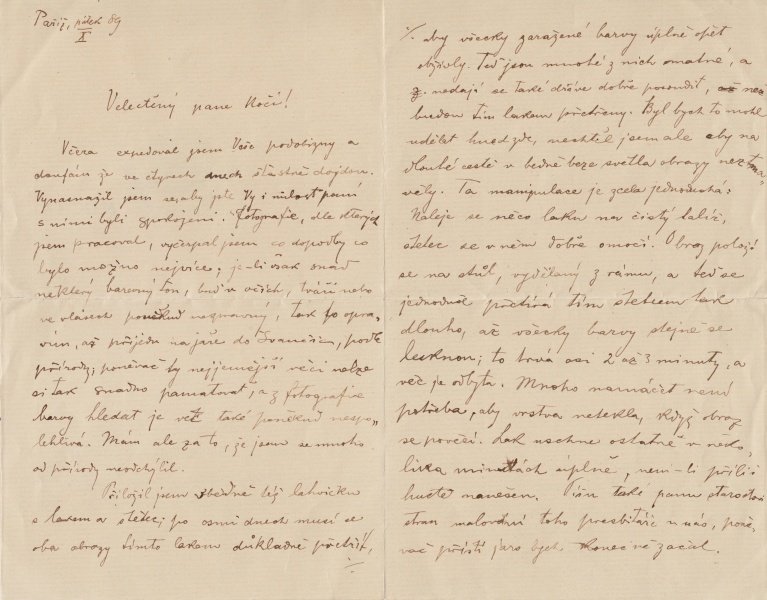 Paříž, pátek 89
X
Velectěný pane Kočí!
Včera expedoval jsem Vaše podobizny a
doufám že ve čtyrech dnech šťastně dojdou.
Vynasnažil jsem se, aby jste Vy i milosť paní
s nimi byli spokojeni. Fotografie, dle kterých
jsem pracoval, vyčerpal jsem co do podoby co
bylo možno nejvíce; je-li však snad
některý barevný tón, buď v očích, tváři nebo
ve vlasech poněkud nesprávný, tak to opra-
vím, až přijedu na jaře do Ivančic, podle
přírody; poněvač ty nejjemnější věci nelze
si tak snadno pamatovať, a z fotografie
barvy hledat je věc také poněkud nespo-
lehlivá. Mám ale za to, že jsem se mnoho
od přírody neodchýlil.
Přiložil jsem v bedně též lahvičku
s lakem a štětec; po osmi dnech musí se
oba obrazy tímto lakem důkladně přetřít,
./.
./. aby všecky zaražené barvy úplně opět
obživly. Teď jsou mnohé z nich omatné, a
nedají se také dříve dobře posoudit, než
budou tím lakem přetřeny. Byl bych to mohl
udělat hned zde, nechtěl jsem ale aby na
dlouhé cestě v bedně beze světla obrazy neztma-
věly. Ta manipulace je zcela jednoduchá:
Naleje se něco laku na čistý talíř,
štětec se v něm dobře omočí. Obraz položí
se na stůl, vydělaný z rámu, a teď se
jednoduše přetírá tím štětcem tak
dlouho, až všecky barvy stejně se
lesknou; to trvá asi 2 až 3 minuty, a
věc je odbyta. Mnoho namáčet není
potřeba, aby vrstva netekla, když obraz
se pověsí. Lak uschne ostatně v něko-
lika minutách úplně, není-li příliš
hustě nanešen. Píšu také panu starostovi
stran malování toho presbitáře u nás, poně-
vač příští jaro bych konečně začal.